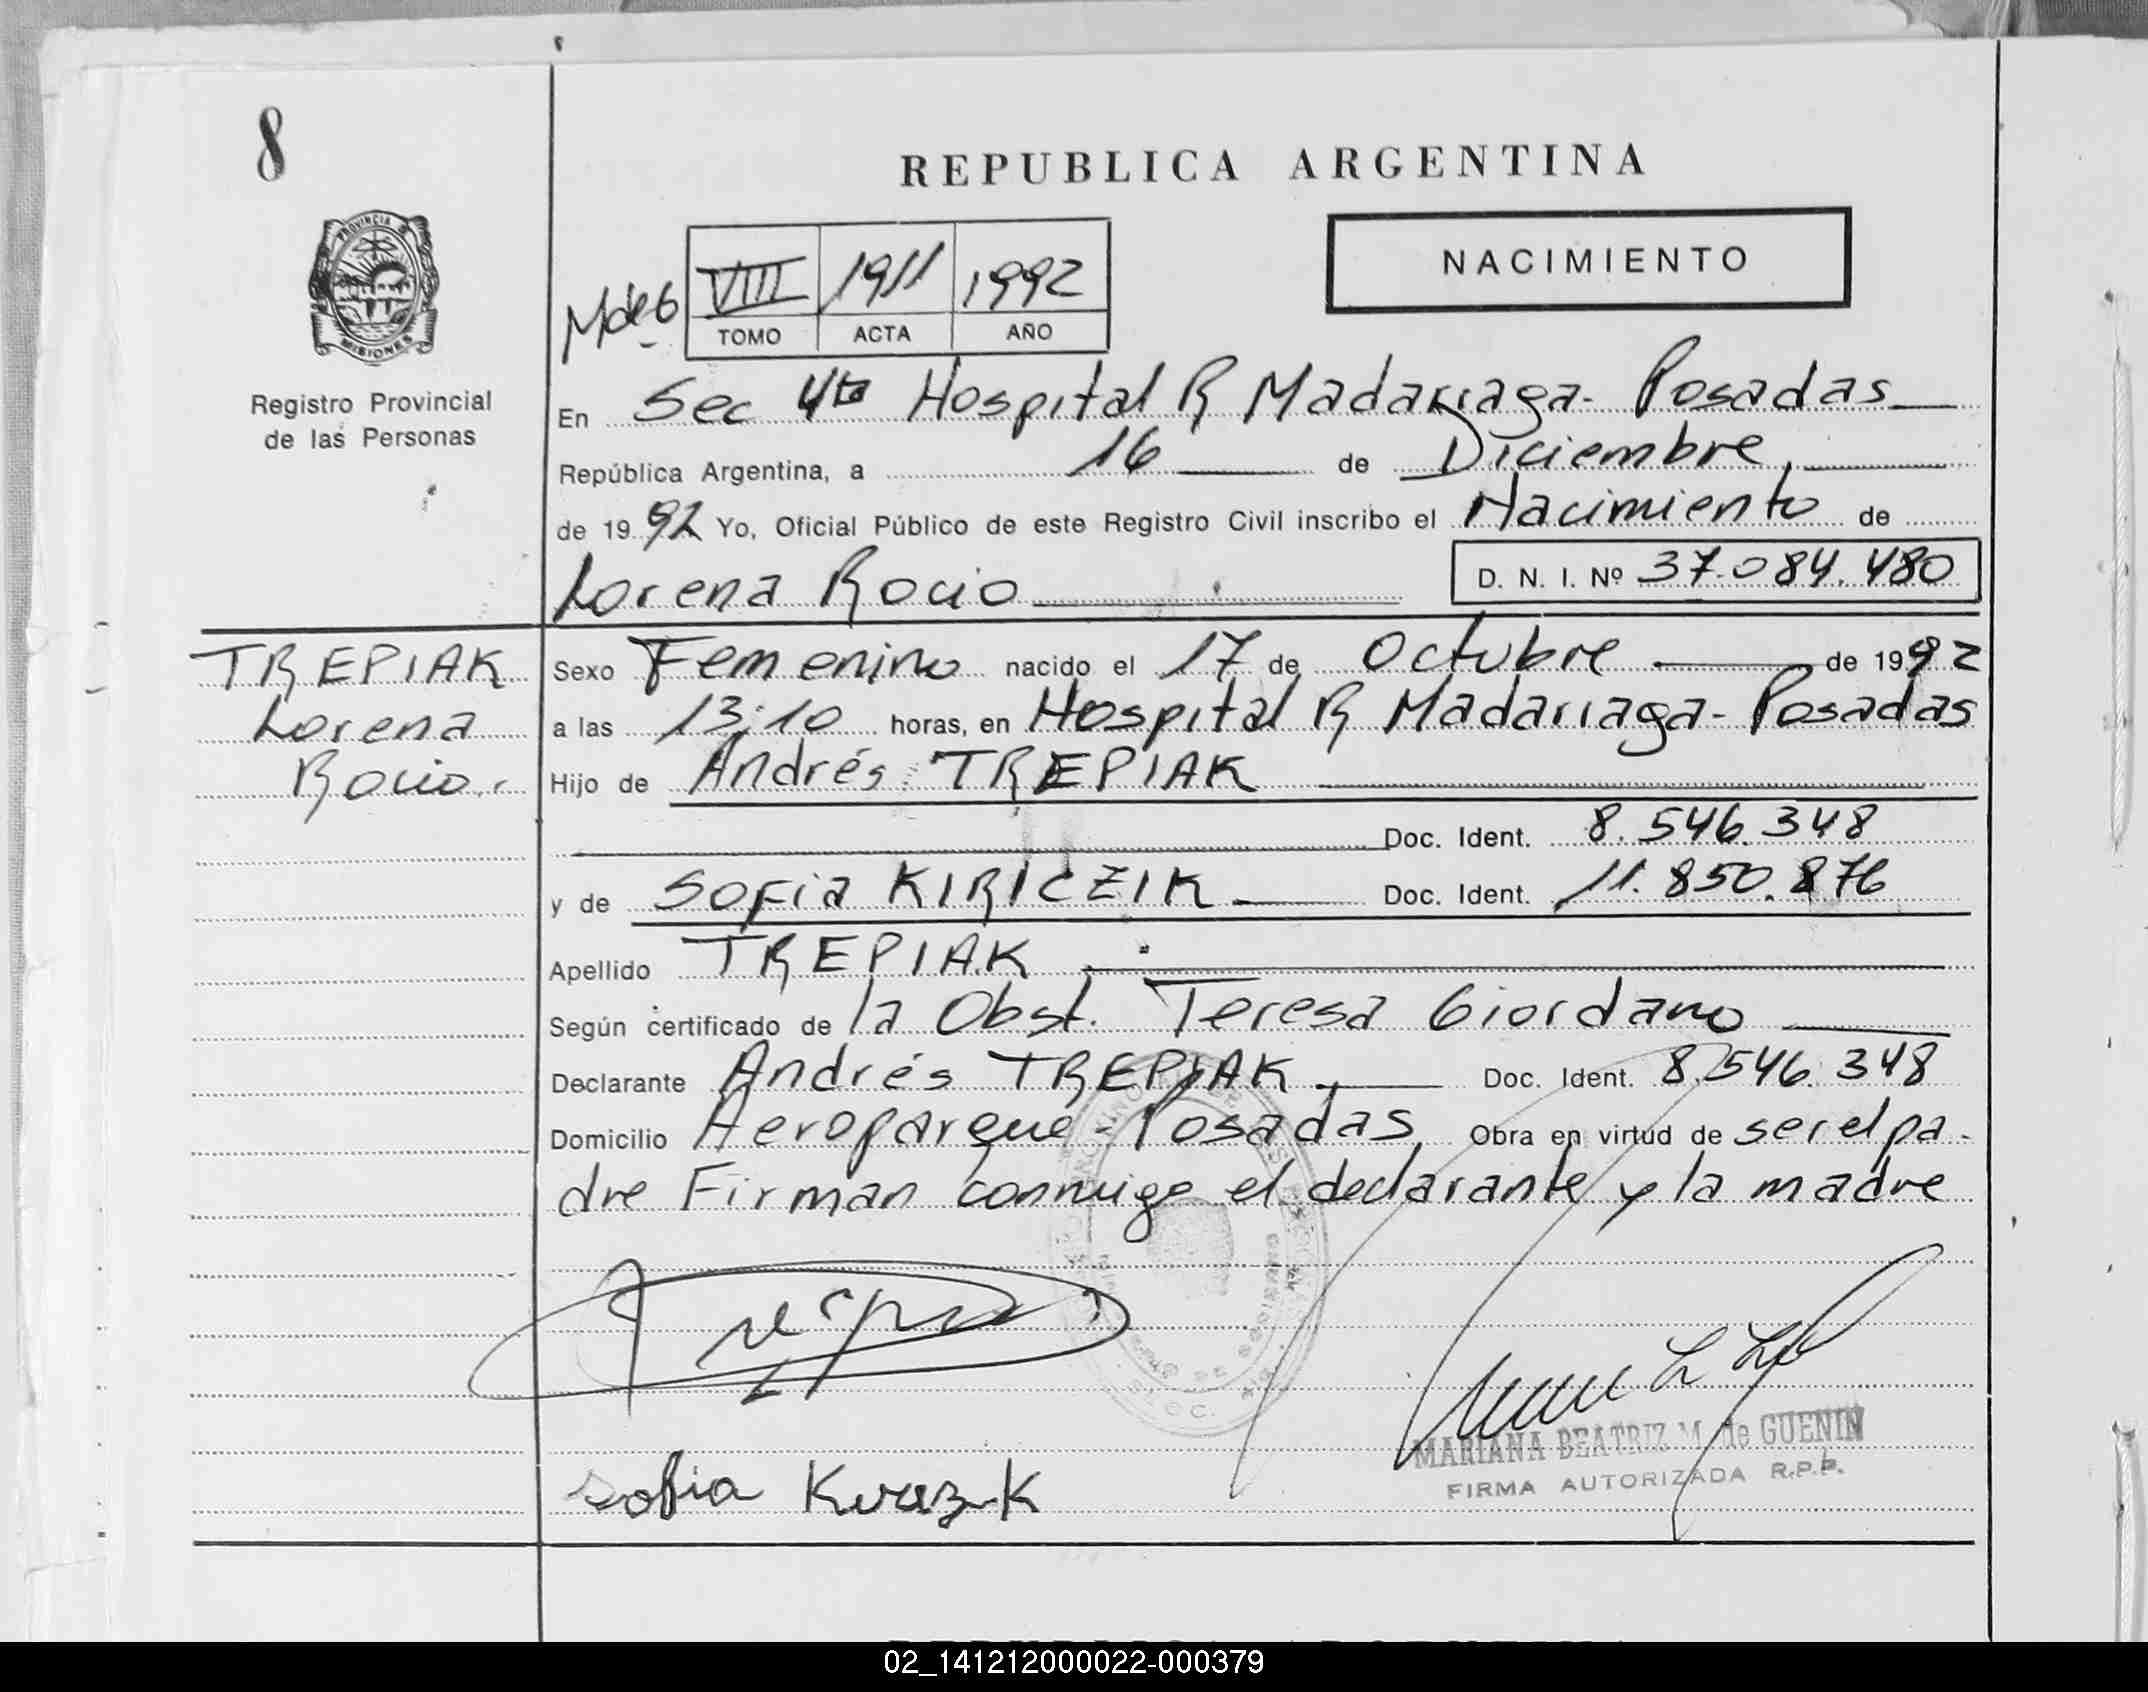 8
REPUBLICA ARGENTINA
NACIMIENTO
PROVINCIA
MISIONES
VIII 1911 1992
TOMO ACTA AÑO
Registro Provincial
de las Personas
En Sec 4ta Hospital R Madariaga - Posadas
República Argentina, a 16 de Diciembre
de 1992 Yo, Oficial Público de este Registro Civil inscribo el Nacimiento de
Lorena Rocio D. N. I. Nº 37.084.480
TREPIAK
Lorena
Rocio.
Sexo Femenino nacido el 17 de Octubre de 1992
a las 13:10 horas, en Hospital R Madariaga - Posadas
Hijo de Andrés TREPIAK
Doc. Ident. 8.546.348
y de Sofia KIRICZIK Doc. Ident. 11.850.876
Apellido TREPIAK
Según certificado de la Obst. Teresa Giordano
Declarante Andrés TREPIAK Doc. Ident. 8.546.348
Domicilio Aeroparque - Posadas Obra en virtud de ser el pa-
dre Firman conmigo el declarante y la madre
MARIANA BEATRIZ M. de GUENIN
FIRMA AUTORIZADA R.P.P.
Sofia
02_141212000022-000379